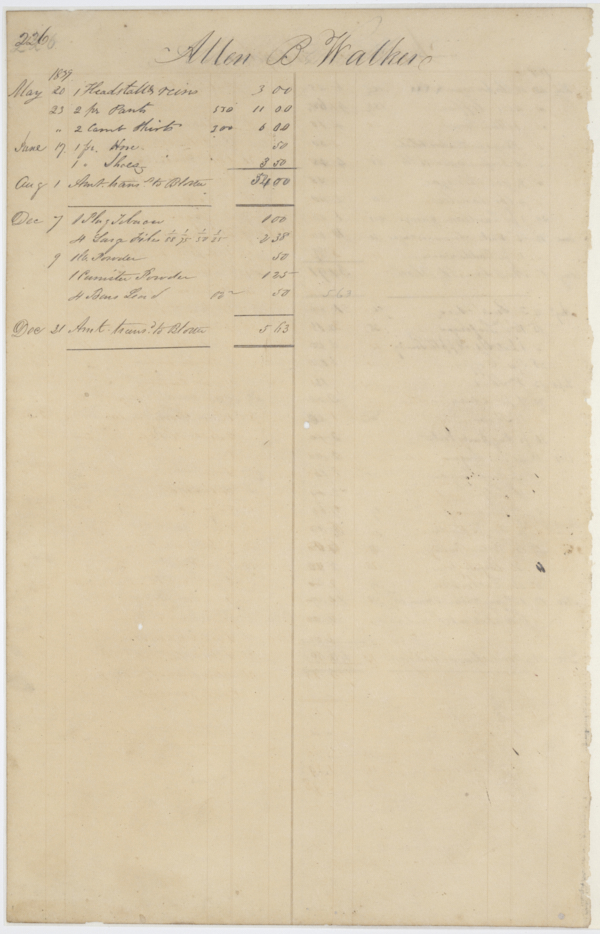 226
Allen B Walker
1839
May 20 1 Headstall & reins 3 00
23 2 pr Pants 550 11 00
" 2 Cambt Shirts 300 6 00
June 17 1 pr. Hose 50
1 " Shoes 3 50
Aug 1 Amt trans.d to Bloter 24 00
Dec 7 1 Plug Tobacco 1 00
4 Large Files 2 38
9 Powder 50
1 Canister Powder 1 25
4 Bars Lead 50
Dec 31 Amt trans.d to Bloter 5 63